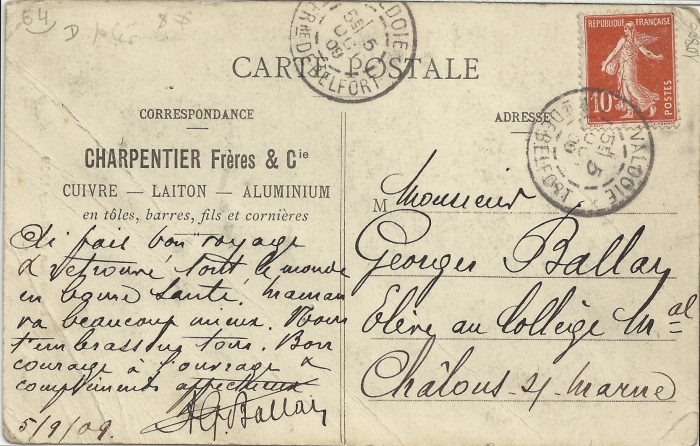 64
CARTE POSTALE
RÉPUBLIQUE FRANÇAISE
10c
POSTES
VALDOIE
Fse DE BELFORT
5
09
VALDOIE
DE BELFORT
5
09
CORRESPONDANCE
ADRESSE
CHARPENTIER Frères & Cie
CUIVRE — LAITON — ALUMINIUM
en tôles, barres, fils et cornières
Ai fait bon voyage
& retrouvé tout le monde
en bonne santé. Maman
va beaucoup mieux. Nous
t'embrassons tous. Bon
courage à l'ouvrage &
compliments affectueux
Ballay
5/9/09.
M Monsieur
Georges Ballay
Elève au Collège Mal
Châlons s/ Marne